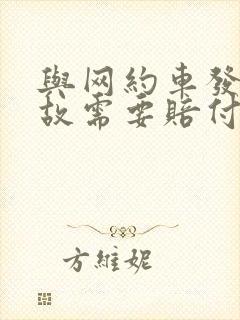 與网約車發
故需要賠付
方維妮